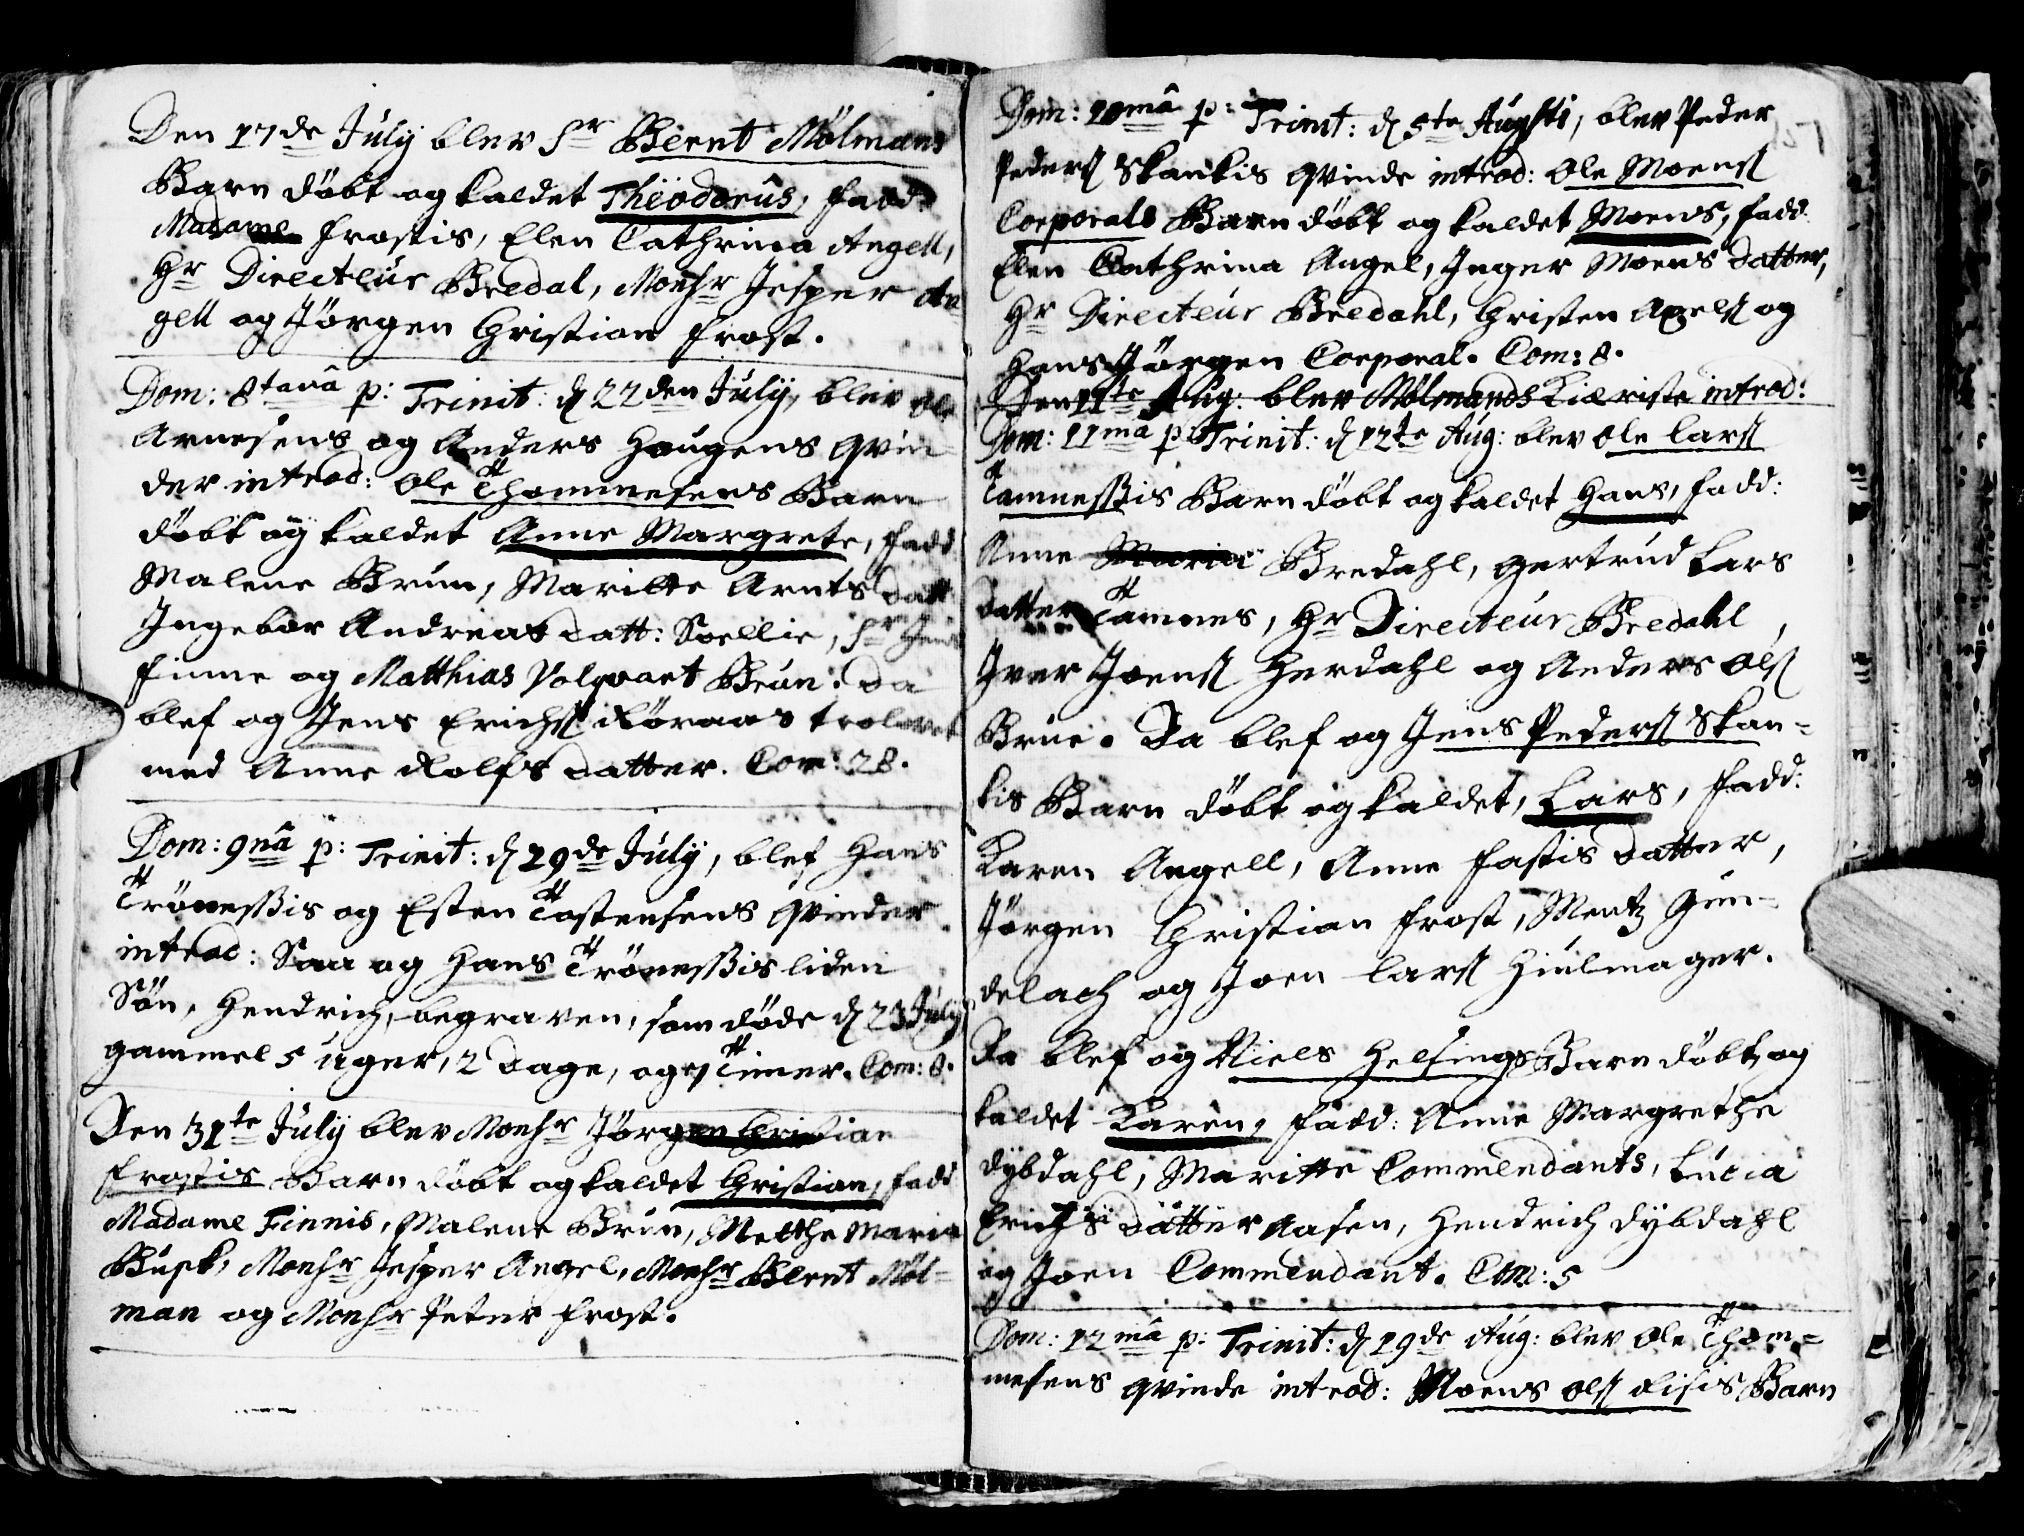 Den 17de Julÿ blev Sr Bernt Mölmans
Barn döbt og kaldet Theodorus, fadd:
Madame Frostis, Elen Cathrina Angell,
Hr Directeur Bredal, Monsr Jesper An
gell og Jörgen Christian Frost.
Dom: 8tavâ p: Trinit: d 22den Julÿ, blev Ole
Arnesens og Anders Haugens Qvin
der introd: Ole Thommesens Barn
döbt og kaldet Anne Margrete, fadd
Malene Brun, Maritte Arnts datt
Ingebor Andreas datt: Soellie, Sr
Finne og Matthias Volqvart Brun. Da
blef og Jens Erichs: Röraas trolovet
med Anne Rolfs datter. Com: 28.
Dom: 9nâ p: Trinit: d 29de Julÿ, blef Hans
Trönessis og Esten Tostensens Qvinder
introd: Saa og Hans Trönessis liden
Sön, Hendrich, begraven, som döde d 23 Julÿ
gammel 5 uger, 2 dage, og 7 Timer. Com: 8.
Den 31te Julÿ blev Monsr Jörgen Christian
Frostis Barn döbt og kaldet Christian, fadd
Madame Finnis, Malene Brun, Metthe Maria
Busk, Monsr Jesper Angel, Monsr Bernt Möl-
man og Monsr Peter Frost.
Dom: 10mâ p: Trinit: d 5te Augsti, blev Peder
Peders: Skankis Qvinde introd: Ole Moens:
Corporals Barn döbt og kaldet Moens, fadd
Elen Cathrina Angel, Inger Moens datter,
Hr Directeur Bredahl, Christen Axels: og
Hans Jörgen Corporal. Com: 8.
Den 11te Aug: blev Mölmands Kiæriste introd:
Dom: 11mâ p: Trinit: d 12te Aug: blev Ole Lars:
Tamnessis Barn döbt og kaldet Hans, fadd:
Anne Maria Bredahl, Gertrud Lars
datter Tamnes, Hr Directeur Bredahl,
Iver Joens: Herdahl og Anders Ols:
Brue. Da blef og Jens Peders: Skan-
kis Barn döbt og kaldet, Lars, fadd:
Karen Angell, Anne Fastis datter,
Jörgen Christian Frost, Mentz Gun-
delach og Joen Lars: Hiulmager.
Da blef og Niels Helsings Barn döbt og
kaldet Karen, fadd: Anne Margrethe
Dybdahl, Maritte Commendants, Lucia
Erichs datter Aasen, Hendrich Dybdahl
og Joen Commendant. Com: 5
Dom: 12mâ p: Trinit: d 19de Aug: blev Ole Thom-
mesens Qvinde introd: Moens Ols: Risis Barn